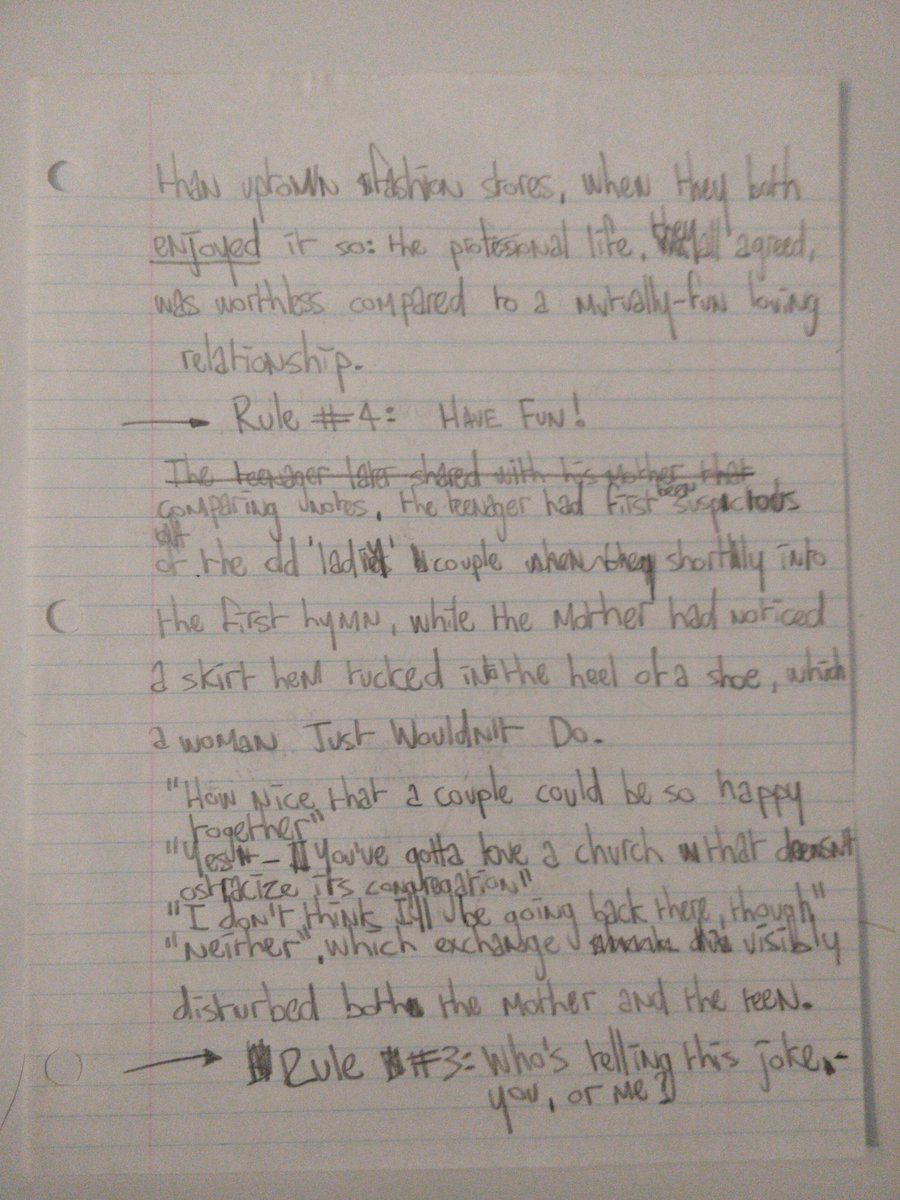 than uptown fashion stores, when they both
enjoyed it so: the profesional life, they all agreed,
was worthless compared to a mutually-fun loving
relationship.
→ Rule #4: HAVE FUN!
The teenager later shared with his Mother that
comparing notes, the teenager had first been suspicious
of the old 'ladies' couple shortly into
the first hymn, while the Mother had noticed
a skirt hem tucked into the heel of a shoe, which
a woman Just Wouldn't Do.
"How Nice that a couple could be so happy
together"
"Yes - you've gotta love a church that doesn't
ostracize its congregation"
"I don't think I'll be going back there, though"
"Neither", which exchange visibly
disturbed both the Mother and the teen.
→ Rule #3: Who's telling this joke -
you, or me?